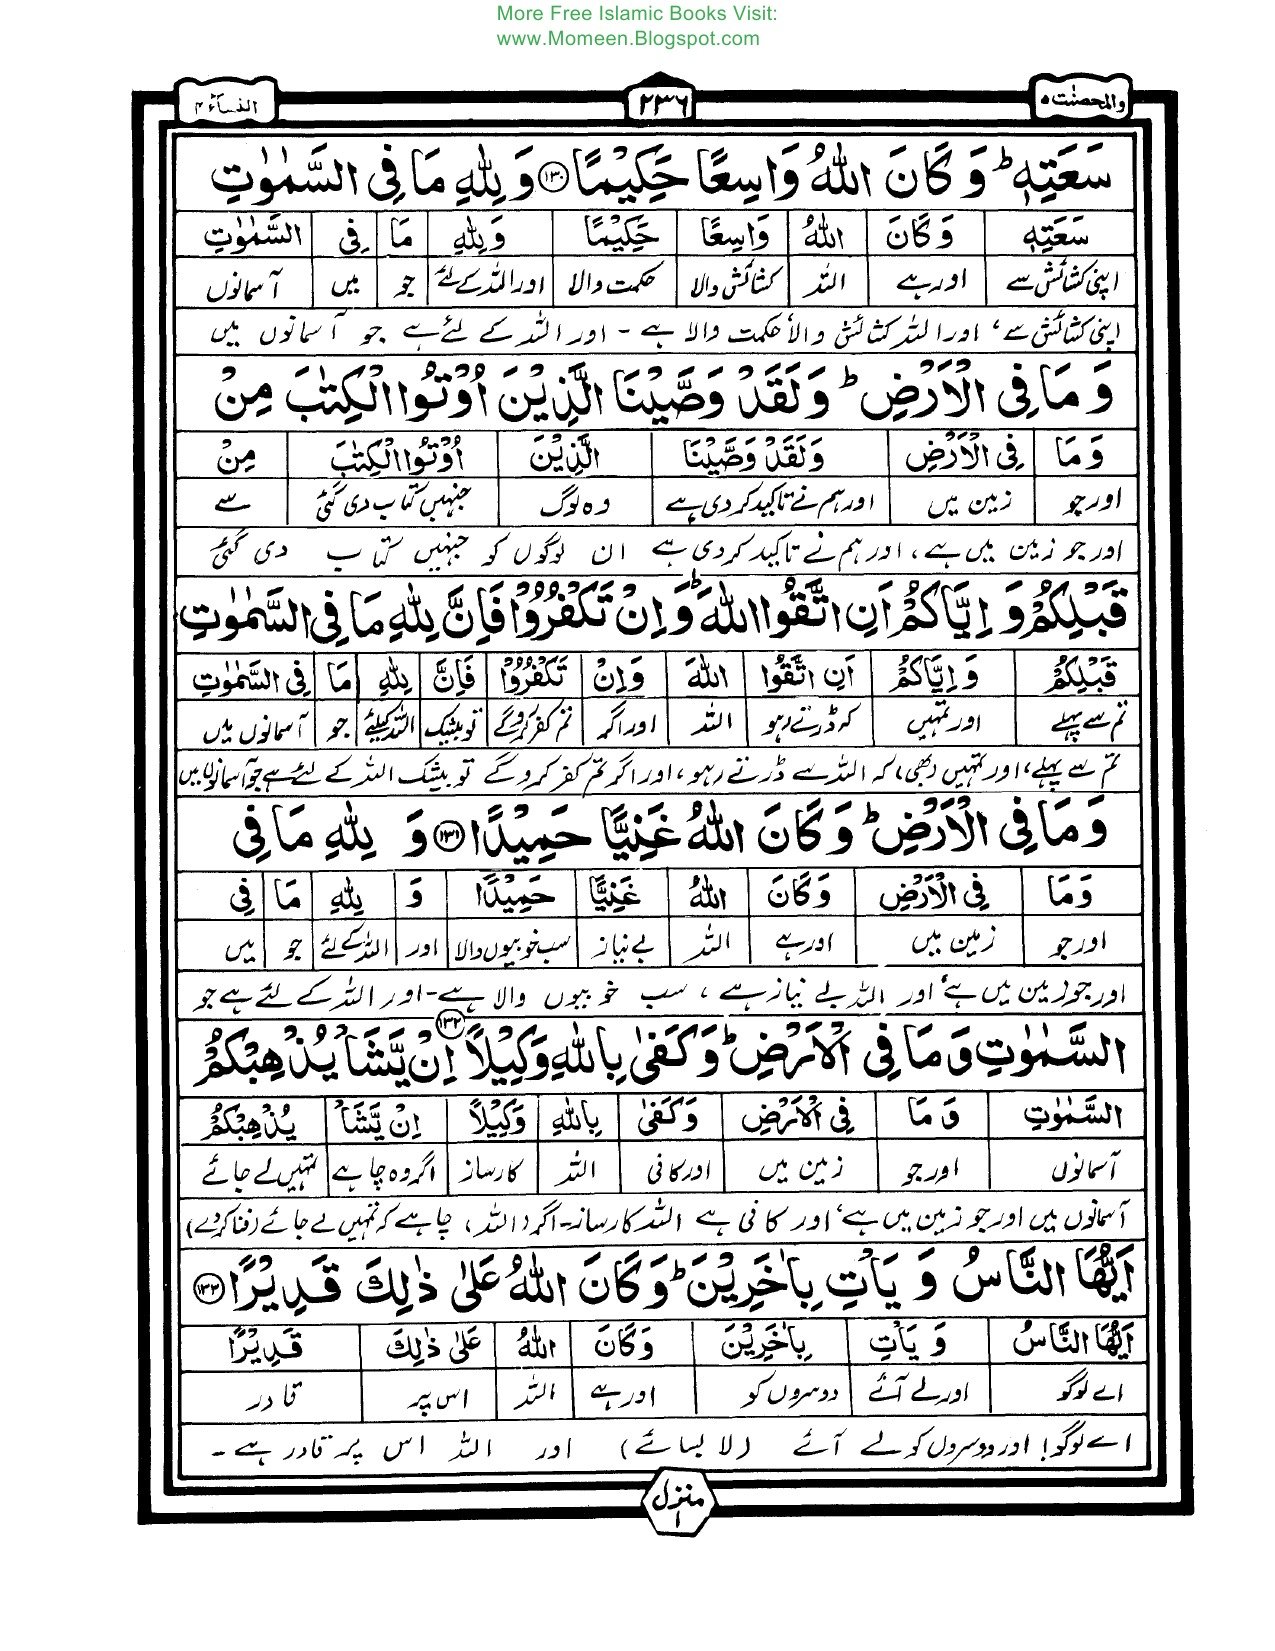 More Free Islamic Books Visit:
www.Momeen.Blogspot.com
والمحصنت ۵
۲۳۶
النساء ۴
سَعَتِهٖ ؕ وَكَانَ اللّٰهُ وَاسِعًا حَكِيْمًا ۱۳۰ وَلِلّٰهِ مَا فِى السَّمٰوٰتِ
سَعَتِهٖ وَكَانَ اللّٰهُ وَاسِعًا حَكِيْمًا وَلِلّٰهِ مَا فِى السَّمٰوٰتِ
اپنی کشائش سے اور ہے اللہ کشائش والا حکمت والا اور اللہ کے لئے جو میں آسمانوں
اپنی کشائش سے، اور اللہ کشائش والا حکمت والا ہے - اور اللہ کے لئے ہے جو آسمانوں میں
وَمَا فِى الْاَرْضِ ؕ وَلَقَدْ وَصَّيْنَا الَّذِيْنَ اُوْتُوا الْكِتٰبَ مِنْ
وَمَا فِى الْاَرْضِ وَلَقَدْ وَصَّيْنَا الَّذِيْنَ اُوْتُوا الْكِتٰبَ مِنْ
اور جو زمین میں اور ہم نے تاکید کردی ہے وہ لوگ جنہیں کتاب دی گئی سے
اور جو زمین میں ہے، اور ہم نے تاکید کردی ہے ان لوگوں کو جنہیں کتاب دی گئی
قَبْلِكُمْ وَ اِيَّاكُمْ اَنِ اتَّقُوا اللّٰهَ ؕ وَاِنْ تَكْفُرُوْا فَاِنَّ لِلّٰهِ مَا فِى السَّمٰوٰتِ
قَبْلِكُمْ وَاِيَّاكُمْ اَنِ اتَّقُوا اللّٰهَ وَاِنْ تَكْفُرُوْا فَاِنَّ لِلّٰهِ مَا فِى السَّمٰوٰتِ
تم سے پہلے اور تمہیں کہ ڈرتے رہو اللہ اور اگر تم کفر کروگے تو بیشک اللہ کیلئے جو آسمانوں میں
تم سے پہلے، اور تمہیں (بھی) کہ اللہ سے ڈرتے رہو، اور اگر تم کفر کروگے تو بیشک اللہ کے لئے ہے جو آسمانوں میں
وَمَا فِى الْاَرْضِ ؕ وَكَانَ اللّٰهُ غَنِيًّا حَمِيْدًا ۱۳۱ وَ لِلّٰهِ مَا فِى
وَمَا فِى الْاَرْضِ وَكَانَ اللّٰهُ غَنِيًّا حَمِيْدًا وَ لِلّٰهِ مَا فِى
اور جو زمین میں اور ہے اللہ بے نیاز سب خوبیوں والا اور اللہ کے لئے جو میں
اور جو زمین میں ہے، اور اللہ بے نیاز ہے، سب خوبیوں والا ہے - اور اللہ کے لئے ہے جو
السَّمٰوٰتِ وَمَا فِى الْاَرْضِ ؕ وَكَفٰى بِاللّٰهِ وَكِيْلًا ۱۳۲ اِنْ يَّشَاْ يُذْهِبْكُمْ
السَّمٰوٰتِ وَمَا فِى الْاَرْضِ وَكَفٰى بِاللّٰهِ وَكِيْلًا اِنْ يَّشَاْ يُذْهِبْكُمْ
آسمانوں اور جو زمین میں اور کافی اللہ کارساز اگر وہ چاہے تمہیں لے جائے
آسمانوں میں اور جو زمین میں ہے، اور کافی ہے اللہ کارساز - اگر (اللہ) چاہے کہ تمہیں لے جائے (فنا کردے)
اَيُّهَا النَّاسُ وَيَاْتِ بِاٰخَرِيْنَ ؕ وَكَانَ اللّٰهُ عَلٰى ذٰلِكَ قَدِيْرًا ۱۳۳
اَيُّهَا النَّاسُ وَيَاْتِ بِاٰخَرِيْنَ وَكَانَ اللّٰهُ عَلٰى ذٰلِكَ قَدِيْرًا
اے لوگو اور لے آئے دوسروں کو اور ہے اللہ اس پر قادر
اے لوگو! اور دوسروں کو لے آئے (لا بسائے) اور اللہ اس پر قادر ہے -
منزل ۱